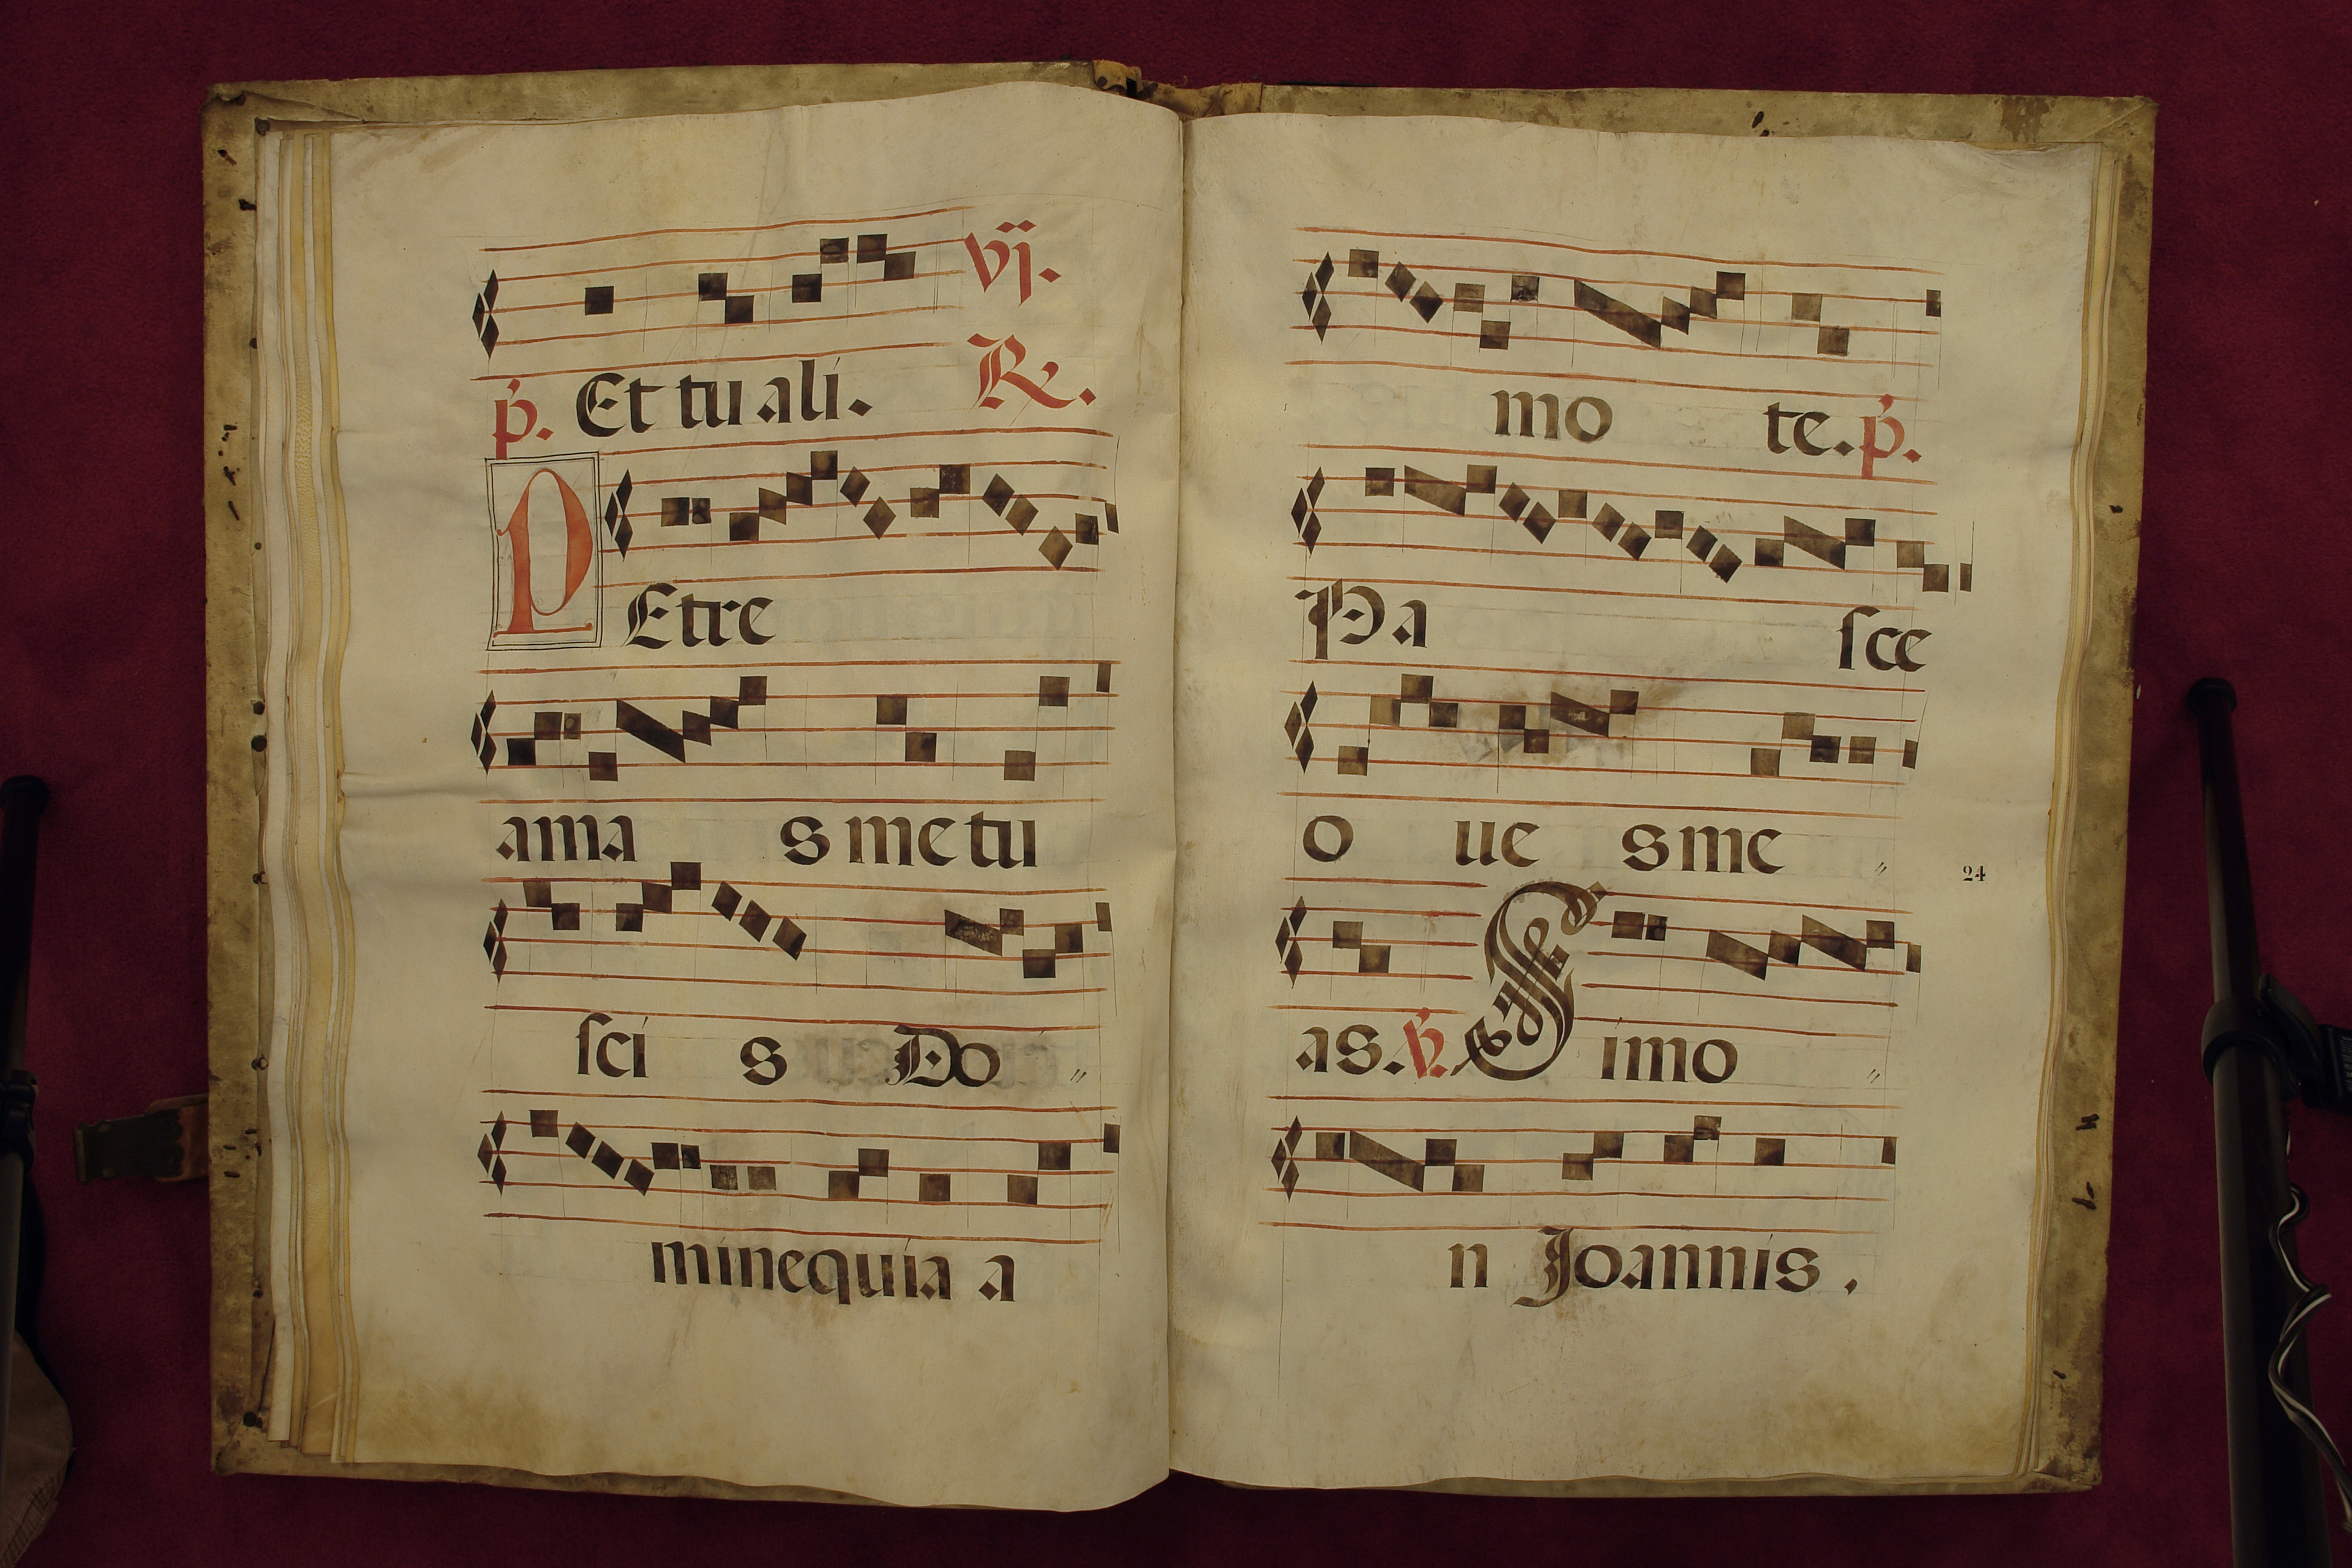 vj.
p. Et tu ali. R.
PEtre
ama s me tu
sci s Do
mine quia a
mo te. p.
Pa sce
o ue s me
24
as. V. Simo
n Joannis.